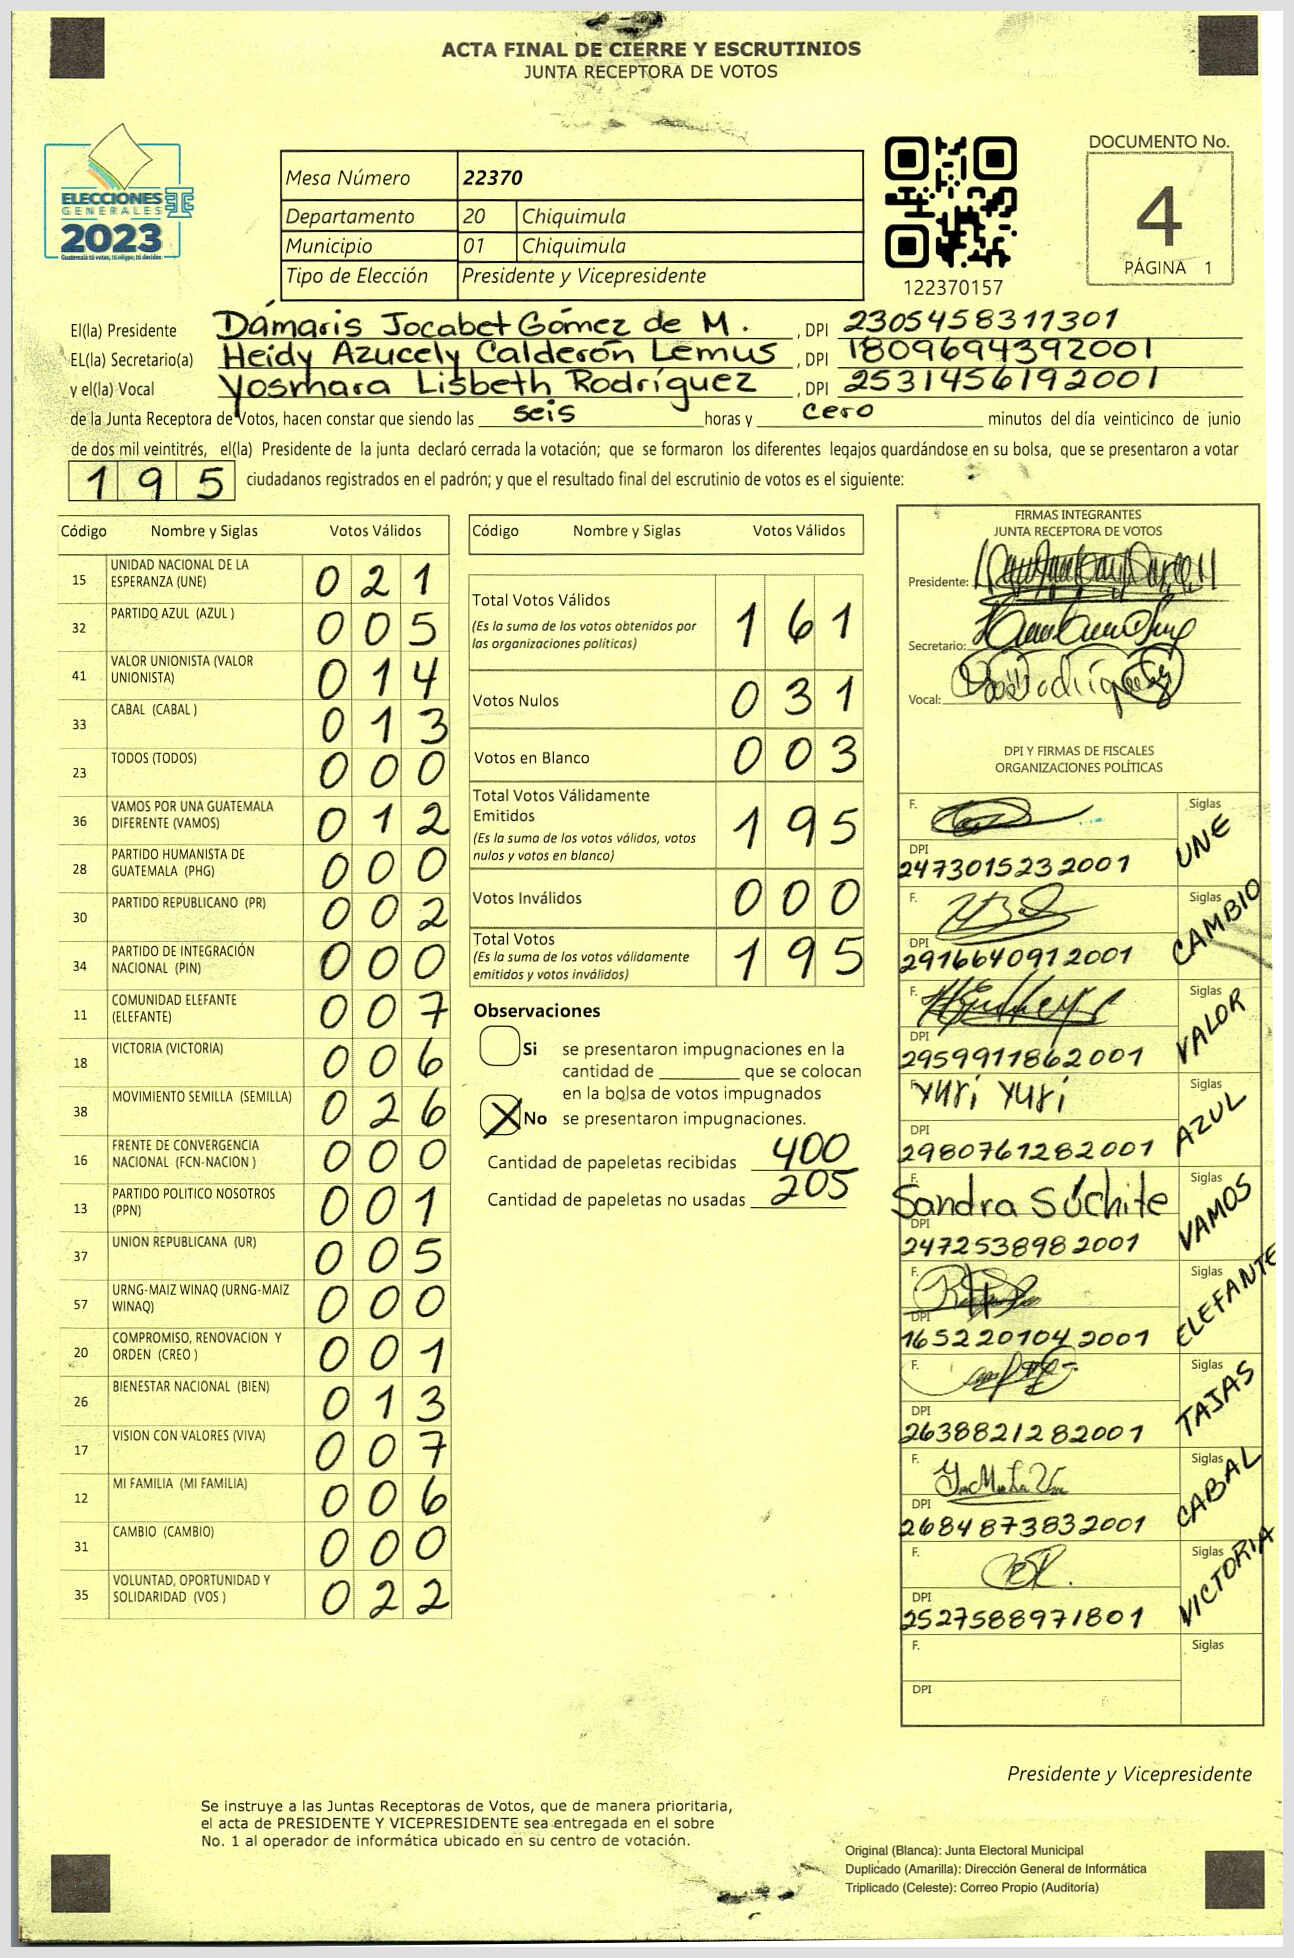 ACTA FINAL DE CIERRE Y ESCRUTINIOS
JUNTA RECEPTORA DE VOTOS
ELECCIONES
GENERALES
2023
Guatemala tú votas, tú eliges, tú decides
Mesa Número 22370
Departamento 20 Chiquimula
Municipio 01 Chiquimula
Tipo de Elección Presidente y Vicepresidente
122370157
DOCUMENTO No.
4
PÁGINA 1
El(la) Presidente Dámaris Jocabet Gómez de M. , DPI 2305458311301
EL(la) Secretario(a) Heidy Azucely Calderón Lemus , DPI 1809694392001
y el(la) Vocal Yosmara Lisbeth Rodríguez , DPI 2531456192001
de la Junta Receptora de Votos, hacen constar que siendo las seis horas y cero minutos del día veinticinco de junio
de dos mil veintitrés, el(la) Presidente de la junta declaró cerrada la votación; que se formaron los diferentes legajos guardándose en su bolsa, que se presentaron a votar
195 ciudadanos registrados en el padrón; y que el resultado final del escrutinio de votos es el siguiente:
Código Nombre y Siglas Votos Válidos
15 UNIDAD NACIONAL DE LA ESPERANZA (UNE) 021
32 PARTIDO AZUL (AZUL ) 005
41 VALOR UNIONISTA (VALOR UNIONISTA) 014
33 CABAL (CABAL ) 013
23 TODOS (TODOS) 000
36 VAMOS POR UNA GUATEMALA DIFERENTE (VAMOS) 012
28 PARTIDO HUMANISTA DE GUATEMALA (PHG) 000
30 PARTIDO REPUBLICANO (PR) 002
34 PARTIDO DE INTEGRACIÓN NACIONAL (PIN) 000
11 COMUNIDAD ELEFANTE (ELEFANTE) 007
18 VICTORIA (VICTORIA) 006
38 MOVIMIENTO SEMILLA (SEMILLA) 026
16 FRENTE DE CONVERGENCIA NACIONAL (FCN-NACION ) 000
13 PARTIDO POLITICO NOSOTROS (PPN) 001
37 UNION REPUBLICANA (UR) 005
57 URNG-MAIZ WINAQ (URNG-MAIZ WINAQ) 000
20 COMPROMISO, RENOVACION Y ORDEN (CREO ) 001
26 BIENESTAR NACIONAL (BIEN) 013
17 VISION CON VALORES (VIVA) 007
12 MI FAMILIA (MI FAMILIA) 006
31 CAMBIO (CAMBIO) 000
35 VOLUNTAD, OPORTUNIDAD Y SOLIDARIDAD (VOS ) 022
Código Nombre y Siglas Votos Válidos
Total Votos Válidos 161
(Es la suma de los votos obtenidos por
las organizaciones políticas)
Votos Nulos 031
Votos en Blanco 003
Total Votos Válidamente
Emitidos 195
(Es la suma de los votos válidos, votos
nulos y votos en blanco)
Votos Inválidos 000
Total Votos 195
(Es la suma de los votos válidamente
emitidos y votos inválidos)
Observaciones
Si se presentaron impugnaciones en la
cantidad de ________ que se colocan
en la bolsa de votos impugnados
X No se presentaron impugnaciones.
Cantidad de papeletas recibidas 400
Cantidad de papeletas no usadas 205
FIRMAS INTEGRANTES
JUNTA RECEPTORA DE VOTOS
Presidente:
Secretario:
Vocal:
DPI Y FIRMAS DE FISCALES
ORGANIZACIONES POLÍTICAS
F. Siglas UNE
DPI
2473015232001
F. Siglas CAMBIO
DPI
2916640912001
F. Siglas VALOR
DPI
2959911862001
F. Yuri Yuri Siglas AZUL
DPI
2980761282001
F. Sandra Súchite Siglas VAMOS
DPI
2472538982001
F. Siglas ELEFANTE
DPI
1652201042001
F. Siglas TAJAS
DPI
2638821282001
F. Siglas CABAL
DPI
2684873832001
F. Siglas VICTORIA
DPI
2527588971801
F. Siglas
DPI
Presidente y Vicepresidente
Se instruye a las Juntas Receptoras de Votos, que de manera prioritaria,
el acta de PRESIDENTE Y VICEPRESIDENTE sea entregada en el sobre
No. 1 al operador de informática ubicado en su centro de votación.
Original (Blanca): Junta Electoral Municipal
Duplicado (Amarilla): Dirección General de Informática
Triplicado (Celeste): Correo Propio (Auditoría)